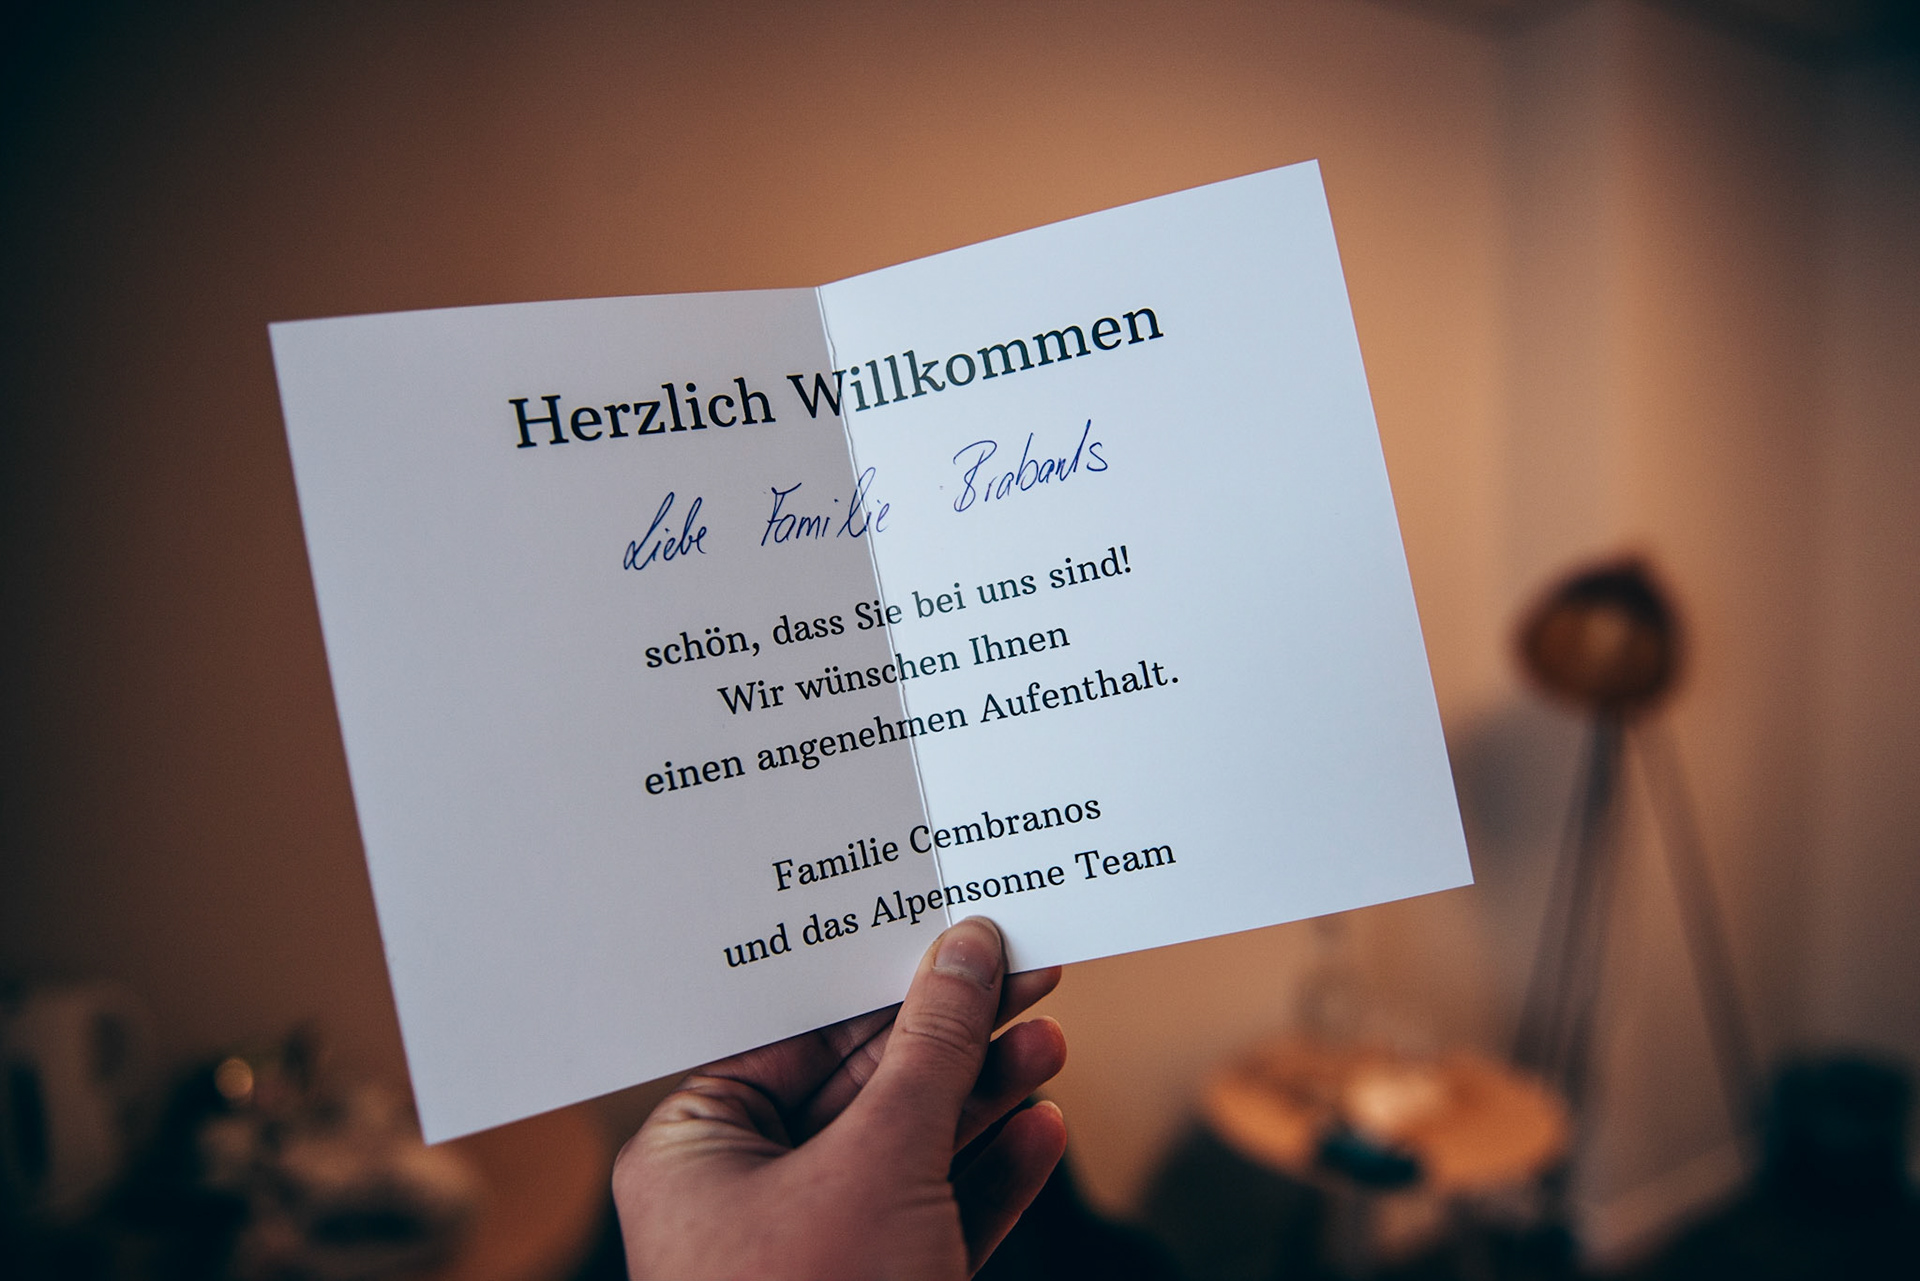 Herzlich Willkommen
Liebe Familie Brabants
schön, dass Sie bei uns sind!
Wir wünschen Ihnen
einen angenehmen Aufenthalt.
Familie Cembranos
und das Alpensonne Team